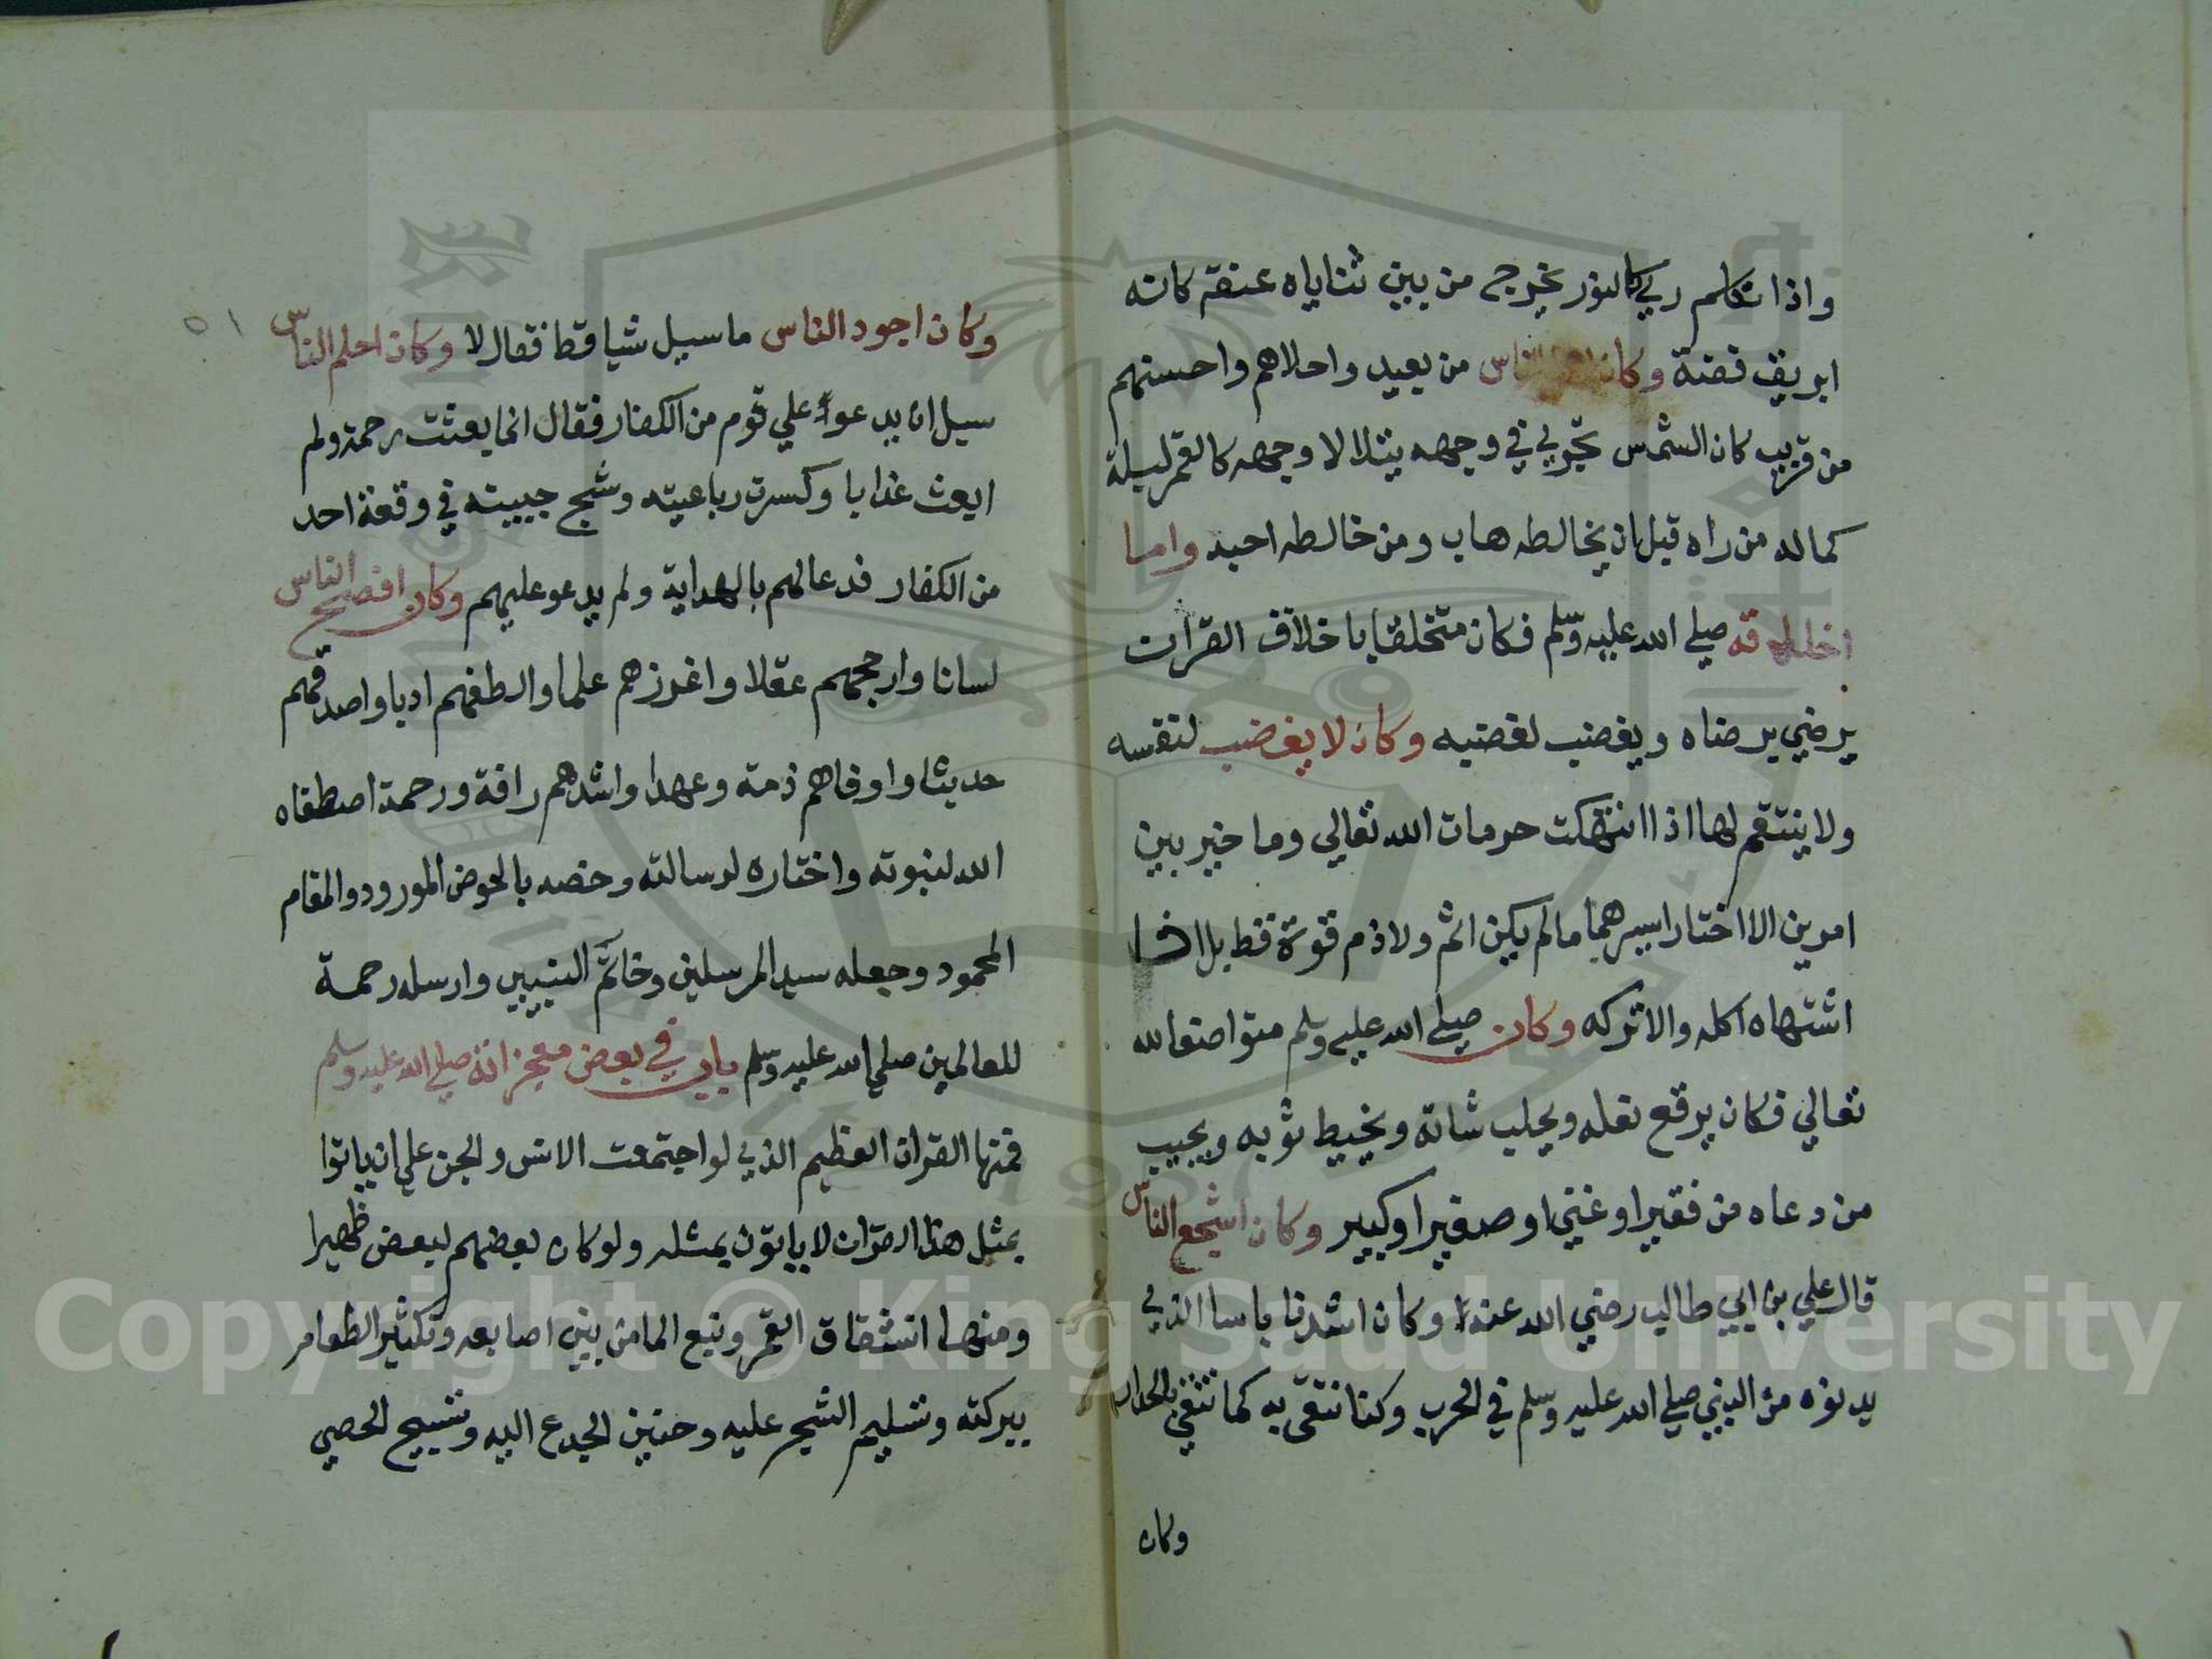 واذا تكلم ري كالنور يخرج من بين ثناياه عنقه كانه
ابريق فضة وكان الناس من بعيد واحلاهم واحسنهم
من قريب كان الشمس تجري في وجهه يتلالا وجهه كالقمر ليلة
كماله من راه قبل ان يخالطه هاب ومن خالطه احبه واما
اخلاقه صلي الله عليه وسلم فكان متخلقا باخلاق القران
يرضي برضاه ويغضب لغضبه وكان لا يغضب لنفسه
ولا ينتقم لها اذا انتهكت حرمات الله تعالي وما خير بين
امرين الا اختار ايسرهما مالم يكن اثم ولا ذم قوته قط بل اذا
اشتهاه اكله والا تركه وكان صلي الله عليه وسلم متواضعا لله
تعالي فكان يرقع نعله ويحلب شاته ويخيط ثوبه ويجيب
من دعاه من فقيرا وغني او صغيرا وكبير وكان اشجع الناس
قال علي بن ابي طالب رضي الله عنه وكان اشدنا باسا الذي
يدنوه من النبي صلي الله عليه وسلم في الحرب وكنا نتقي به كما نتقي
وكان
٥١
وكان اجود الناس ما سيل شيا قط فقال لا وكان احلم الناس
سيل ان يدعواء علي قوم من الكفار فقال انما بعثت رحمة ولم
ابعث عذابا وكسرت رباعيته وشج جبينه في وقعة احد
من الكفار فدعا لهم بالهداية ولم يدعو عليهم وكان افصح الناس
لسانا وارجحهم عقلا واغرزهم علما والطفهم ادبا واصدقهم
حديثا واوفاهم ذمة وعهدا واشدهم رافة ورحمة اصطفاه
الله لنبوته واختاره لرسالته وخصه بالحوض المورود والمقام
المحمود وجعله سيد المرسلين وخاتم النبيين وارسله رحمة
للعالمين صلي الله عليه وسلم باب في بعض معجزاته صلي الله عليه وسلم
فمنها القران العظيم الذي لو اجتمعت الانس والجن علي ان ياتوا
بمثل هذا القران لا ياتون بمثله ولو كان بعضهم لبعض ظهيرا
ومنها انشقاق القمر ونبع الما من بين اصابعه وتكثير الطعام
ببركته وتسليم الشجر عليه وحنين الجدع اليه وتسبيح الحصي
Copyright © King Saud University